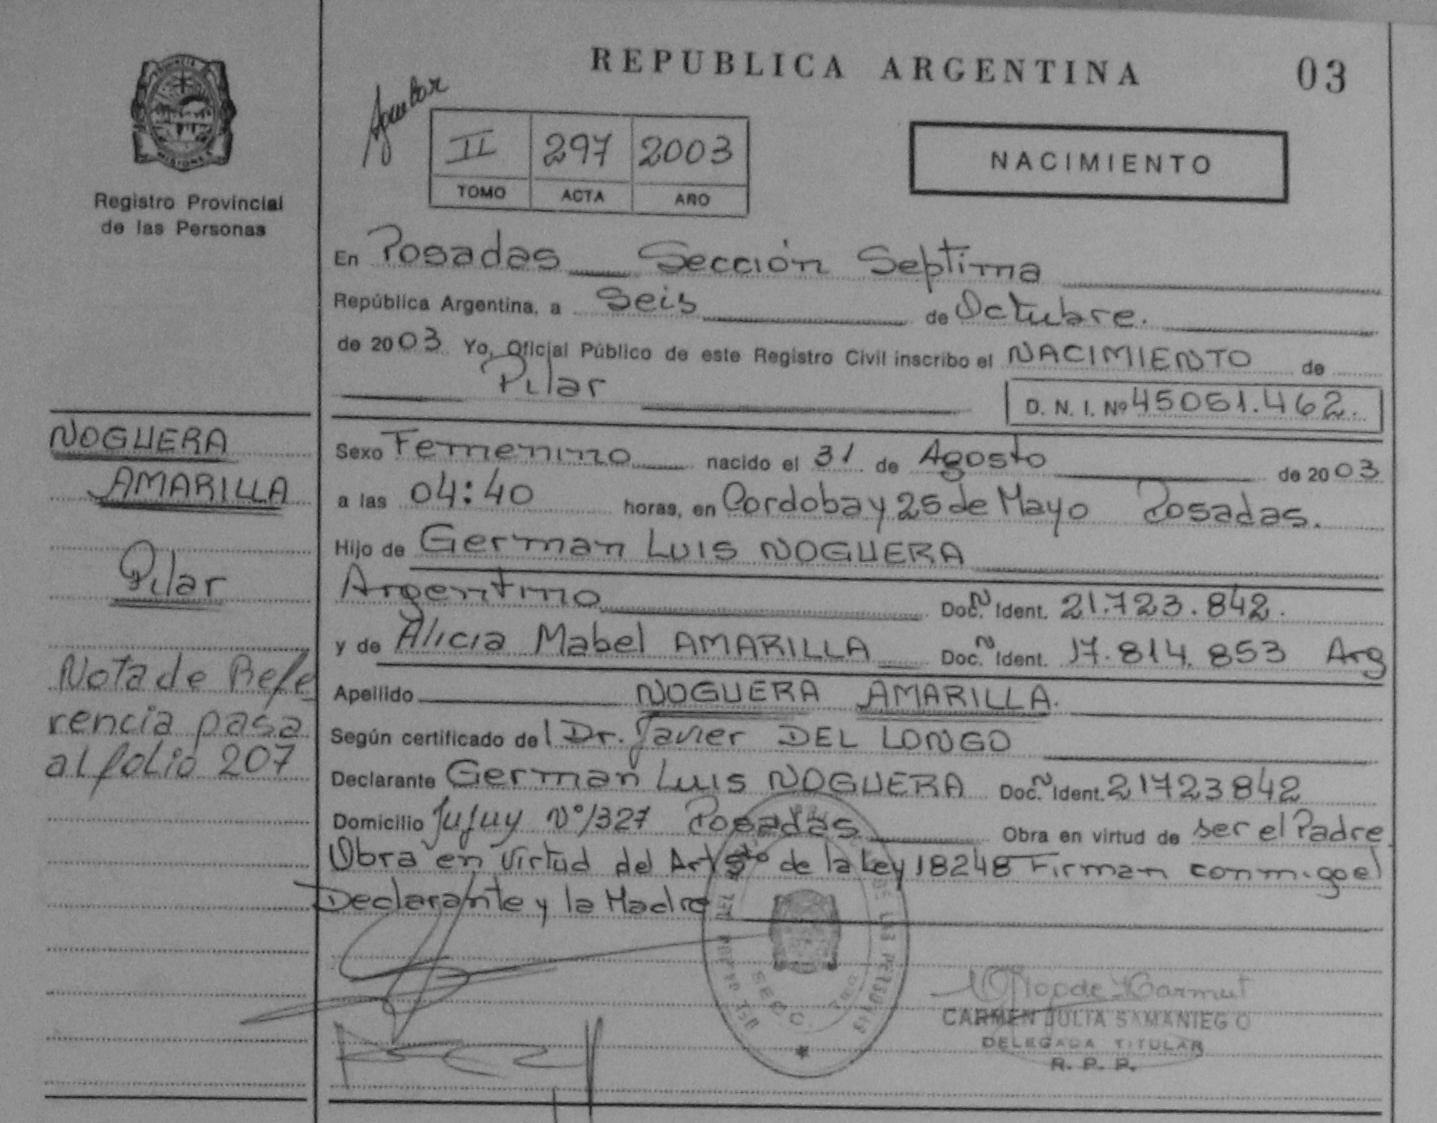 REPUBLICA ARGENTINA
03
PROVINCIA
MISIONES
Registro Provincial
de las Personas
II 297 2003
TOMO ACTA AÑO
NACIMIENTO
En Posadas Sección Septima
República Argentina, a Seis de Octubre.
de 2003 Yo, Oficial Público de este Registro Civil inscribo el NACIMIENTO de
Pilar
D. N. I. Nº 45051.462.
NOGUERA
AMARILLA
Pilar
Nota de Refe
rencia pasa
al folio 207
Sexo Femenino nacido el 31 de Agosto de 2003
a las 04:40 horas, en Cordoba y 25 de Mayo Posadas.
Hijo de German Luis NOGUERA
Argentino Doc. Ident. 21.723.842.
y de Alicia Mabel AMARILLA Doc. Ident. 17.814.853 Arg
Apellido NOGUERA AMARILLA.
Según certificado del Dr. Javier DEL LONGO
Declarante German Luis NOGUERA Doc. Ident. 21723842
Domicilio Jujuy Nº 1327 Posadas Obra en virtud de ser el Padre
Obra en virtud del Art 5to de la Ley 18248 Firman conmigo el
Declarante y la Madre
SECC.
CARMEN JULIA SAMANIEGO
DELEGADA TITULAR
R. P. P.